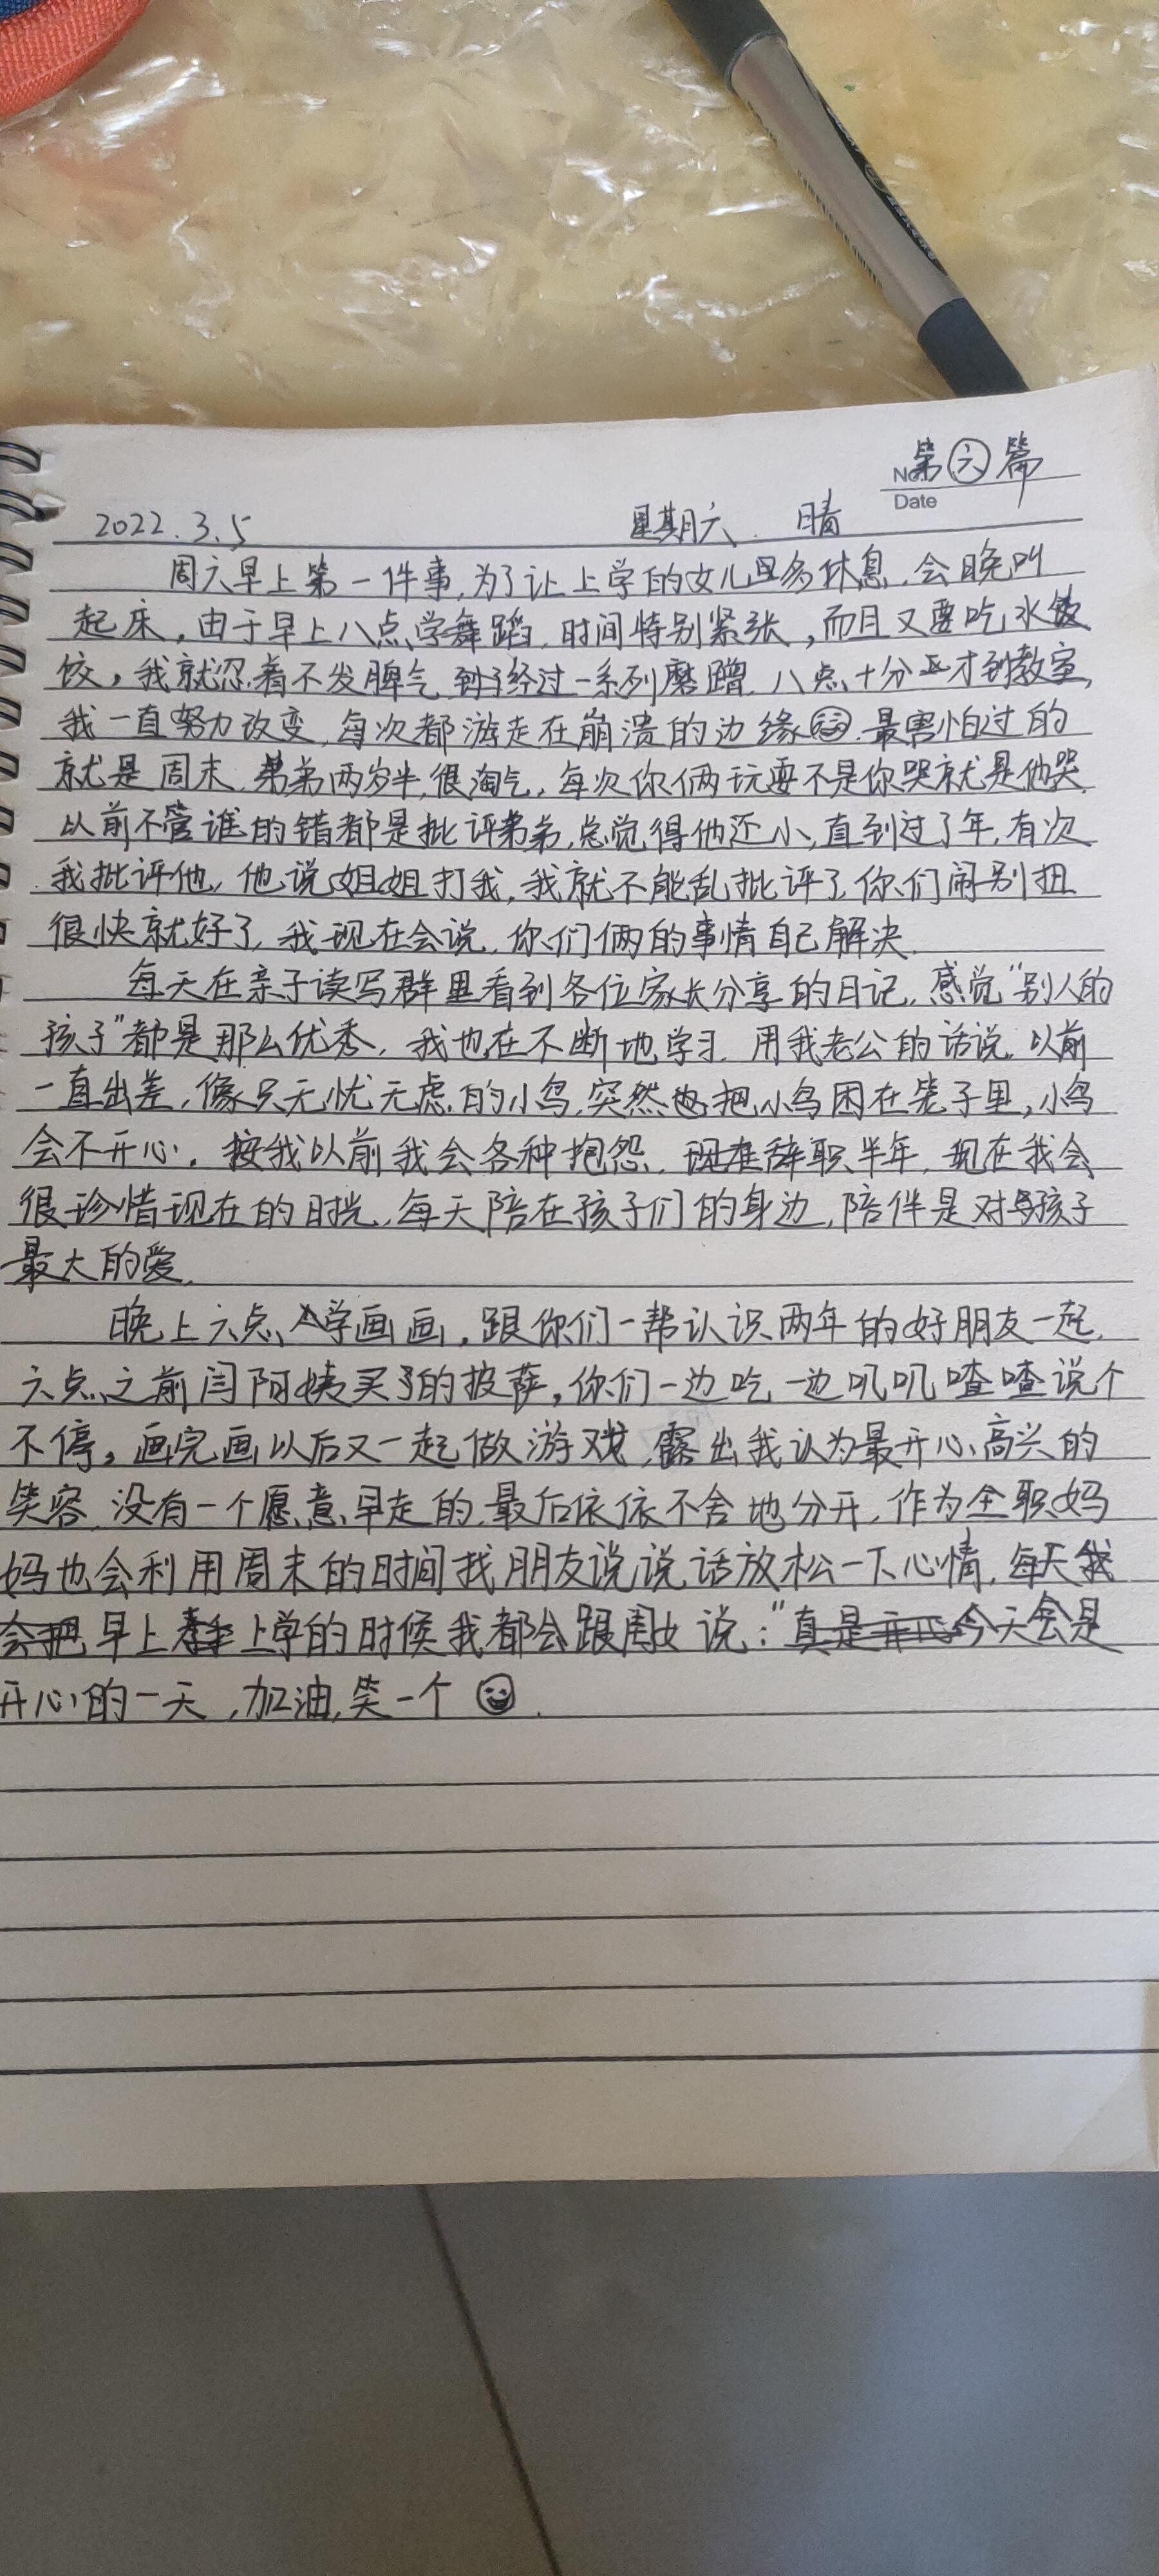 第六篇
No.
Date
2022.3.5 星期六. 晴
周六早上第一件事,为了让上学的女儿多休息,会晚叫
起床,由于早上八点学舞蹈,时间特别紧张,而且又要吃水
饺,我就忍着不发脾气,经过一系列磨蹭,八点十分才到教室,
我一直努力改变,每次都游走在崩溃的边缘,最害怕过的
就是周末,弟弟两岁半,很淘气,每次你俩玩耍不是你哭就是他哭,
以前不管谁的错都是批评弟弟,总觉得他还小,直到过了年,有次
我批评他,他说姐姐打我,我就不能乱批评了,你们闹别扭
很快就好了,我现在会说,你们俩的事情自己解决.
每天在亲子读写群里看到各位家长分享的日记,感觉"别人的
孩子"都是那么优秀,我也在不断地学习,用我老公的话说,以前
一直出差,像只无忧无虑的小鸟,突然把小鸟困在笼子里,小鸟
会不开心,按我以前我会各种抱怨,辞职半年,现在我会
很珍惜现在的时光,每天陪在孩子们的身边,陪伴是对孩子
最大的爱.
晚上六点学画画,跟你们一帮认识两年的好朋友一起,
六点之前闫阿姨买的披萨,你们一边吃一边叽叽喳喳说个
不停,画完画以后又一起做游戏,露出我认为最开心、高兴的
笑容,没有一个愿意早走的,最后依依不舍地分开,作为全职妈
妈也会利用周末的时间找朋友说说话放松一下心情,每天我
会把早上上学的时候我都会跟闺女说:"真是开心今天会是
开心的一天,加油,笑一个 😄.